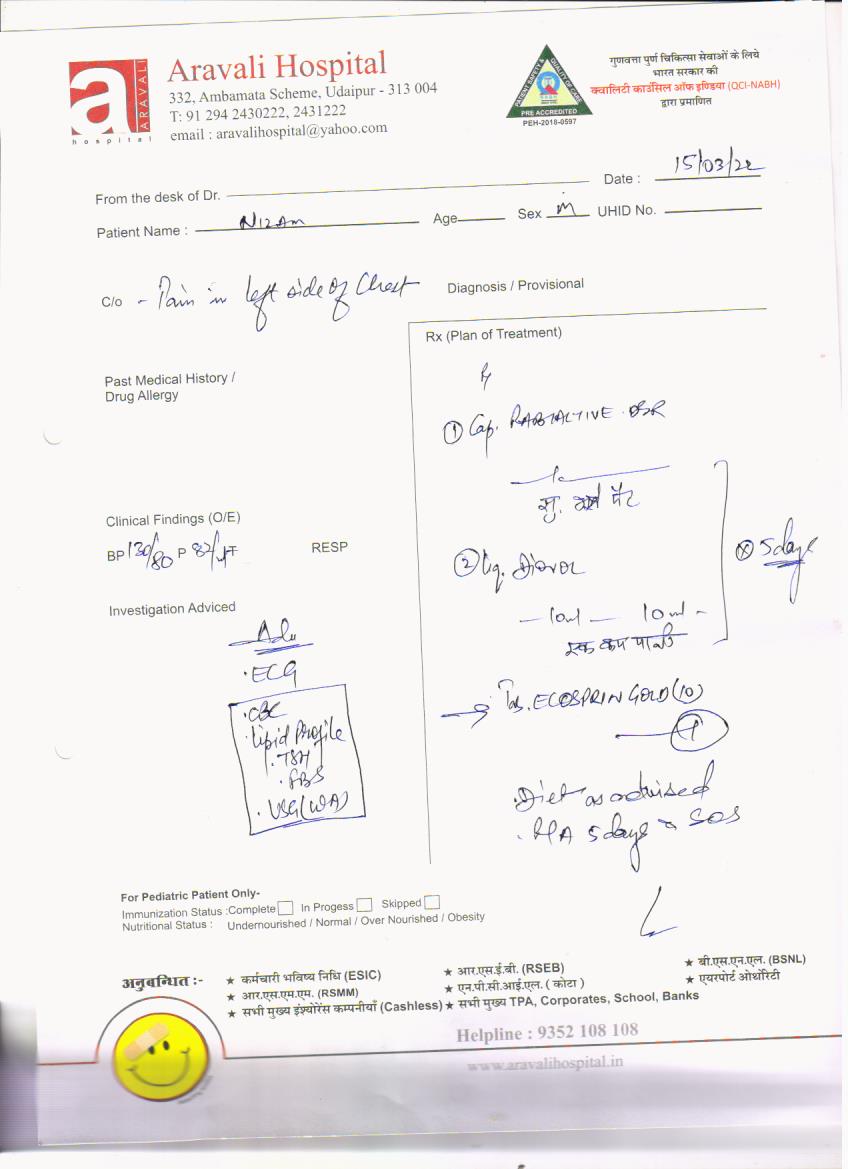 ARAVALI
hospital
Aravali Hospital
332, Ambamata Scheme, Udaipur - 313 004
T: 91 294 2430222, 2431222
email : aravalihospital@yahoo.com
PATIENT SAFETY & QUALITY OF CARE
PRE ACCREDITED
PEH-2018-0597
गुणवत्ता पुर्ण चिकित्सा सेवाओं के लिये
भारत सरकार की
क्वालिटी काउंसिल ऑफ इण्डिया (QCI-NABH)
द्वारा प्रमाणित
From the desk of Dr.
Date : 15/03/22
Patient Name : NIZAM Age Sex M UHID No.
C/o - Pain in left side of Chest
Diagnosis / Provisional
Rx (Plan of Treatment)
Past Medical History /
Drug Allergy
① Cap. RABTACTIVE DSR
सु. पेट
Clinical Findings (O/E)
BP 130/80 P 82/ RESP
② Liq. Diovol
10ml 10ml
एक कप पानी
x 5 days
Investigation Adviced
Adv
. ECG
. CBC
. Lipid Profile
. TSH
. FBS
. USG (W/A)
→ Tab. ECOSPRIN GOLD (10)
1
. Diet as advised
5 days SOS
For Pediatric Patient Only-
Immunization Status : Complete In Progess Skipped
Nutritional Status : Undernourished / Normal / Over Nourished / Obesity
अनुबन्धित :-
★ कर्मचारी भविष्य निधि (ESIC) ★ आर.एस.ई.बी. (RSEB) ★ बी.एस.एन.एल. (BSNL)
★ आर.एस.एम.एम. (RSMM) ★ एन.पी.सी.आई.एल. ( कोटा ) ★ एयरपोर्ट ओथोरिटी
★ सभी मुख्य इंश्योरेंस कम्पनीयाँ (Cashless) ★ सभी मुख्य TPA, Corporates, School, Banks
Helpline : 9352 108 108
www.aravalihospital.in